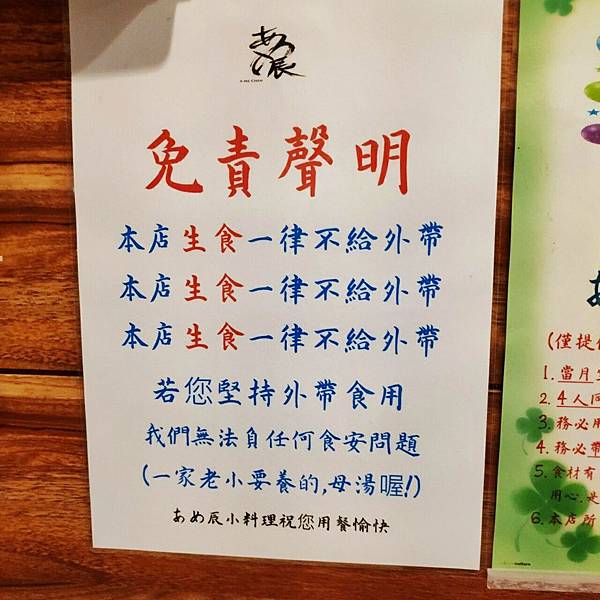 あめ辰
A-ME CHEN
免責聲明
本店生食一律不給外帶
本店生食一律不給外帶
本店生食一律不給外帶
若您堅持外帶食用
我們無法自任何食安問題
(一家老小要養的,母湯喔!)
あめ辰小料理祝您用餐愉快
(僅提
1.當月
2.4人同
3.務必用
4.務必帶
5.食材有
用心.是
6.本店所